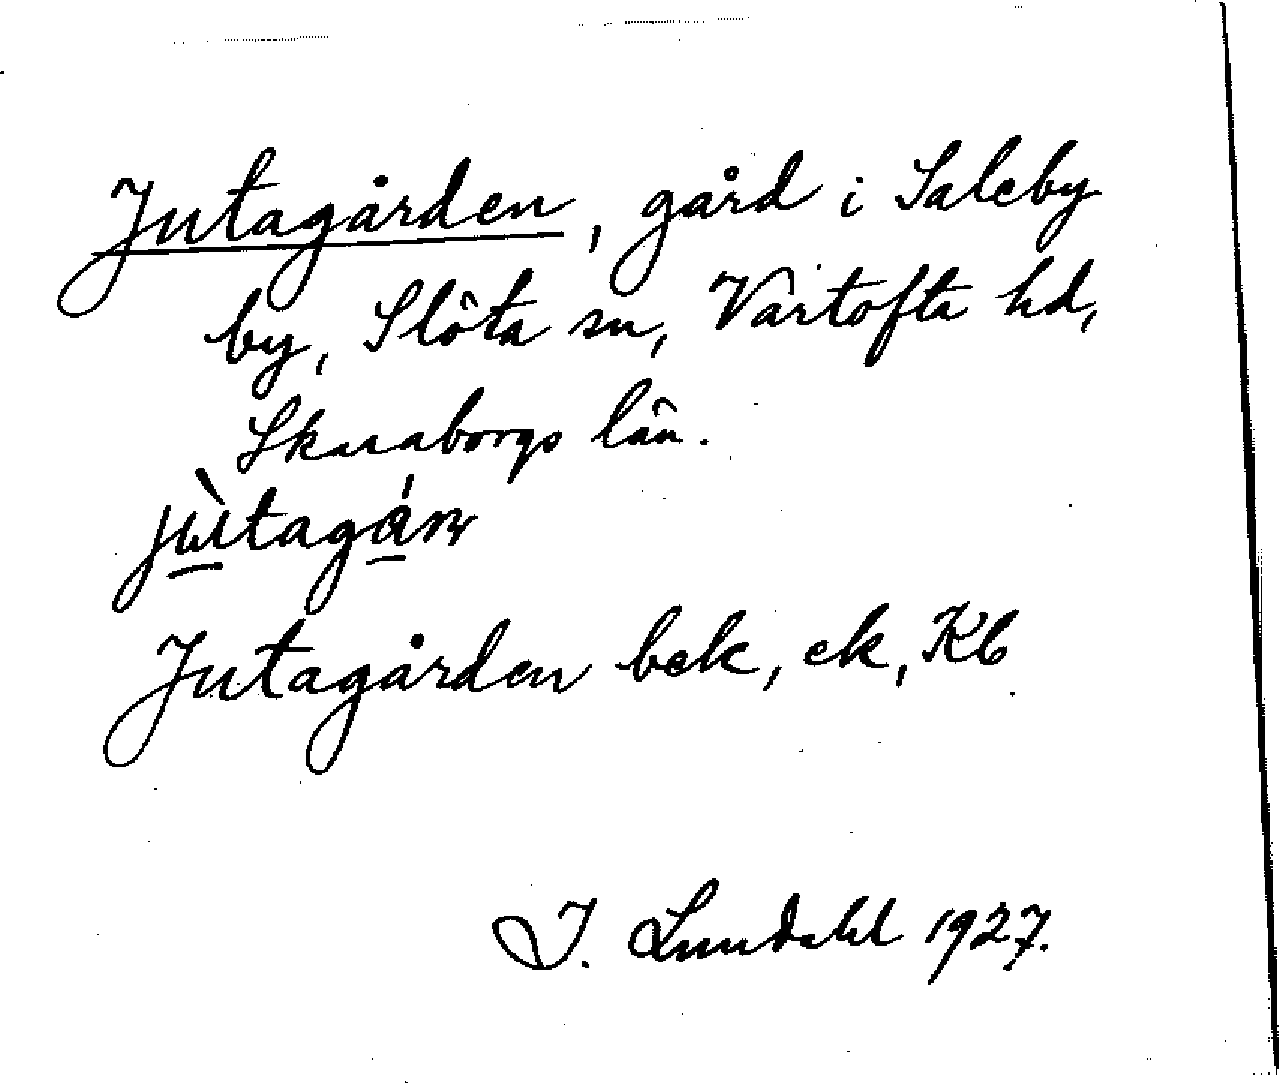 Jutagården, gård i Saleby
by, Slöta sn, Vartofta hd,
Skaraborgs län.
Jutagården bek, ek, Kb
I. Lundahl 1927.